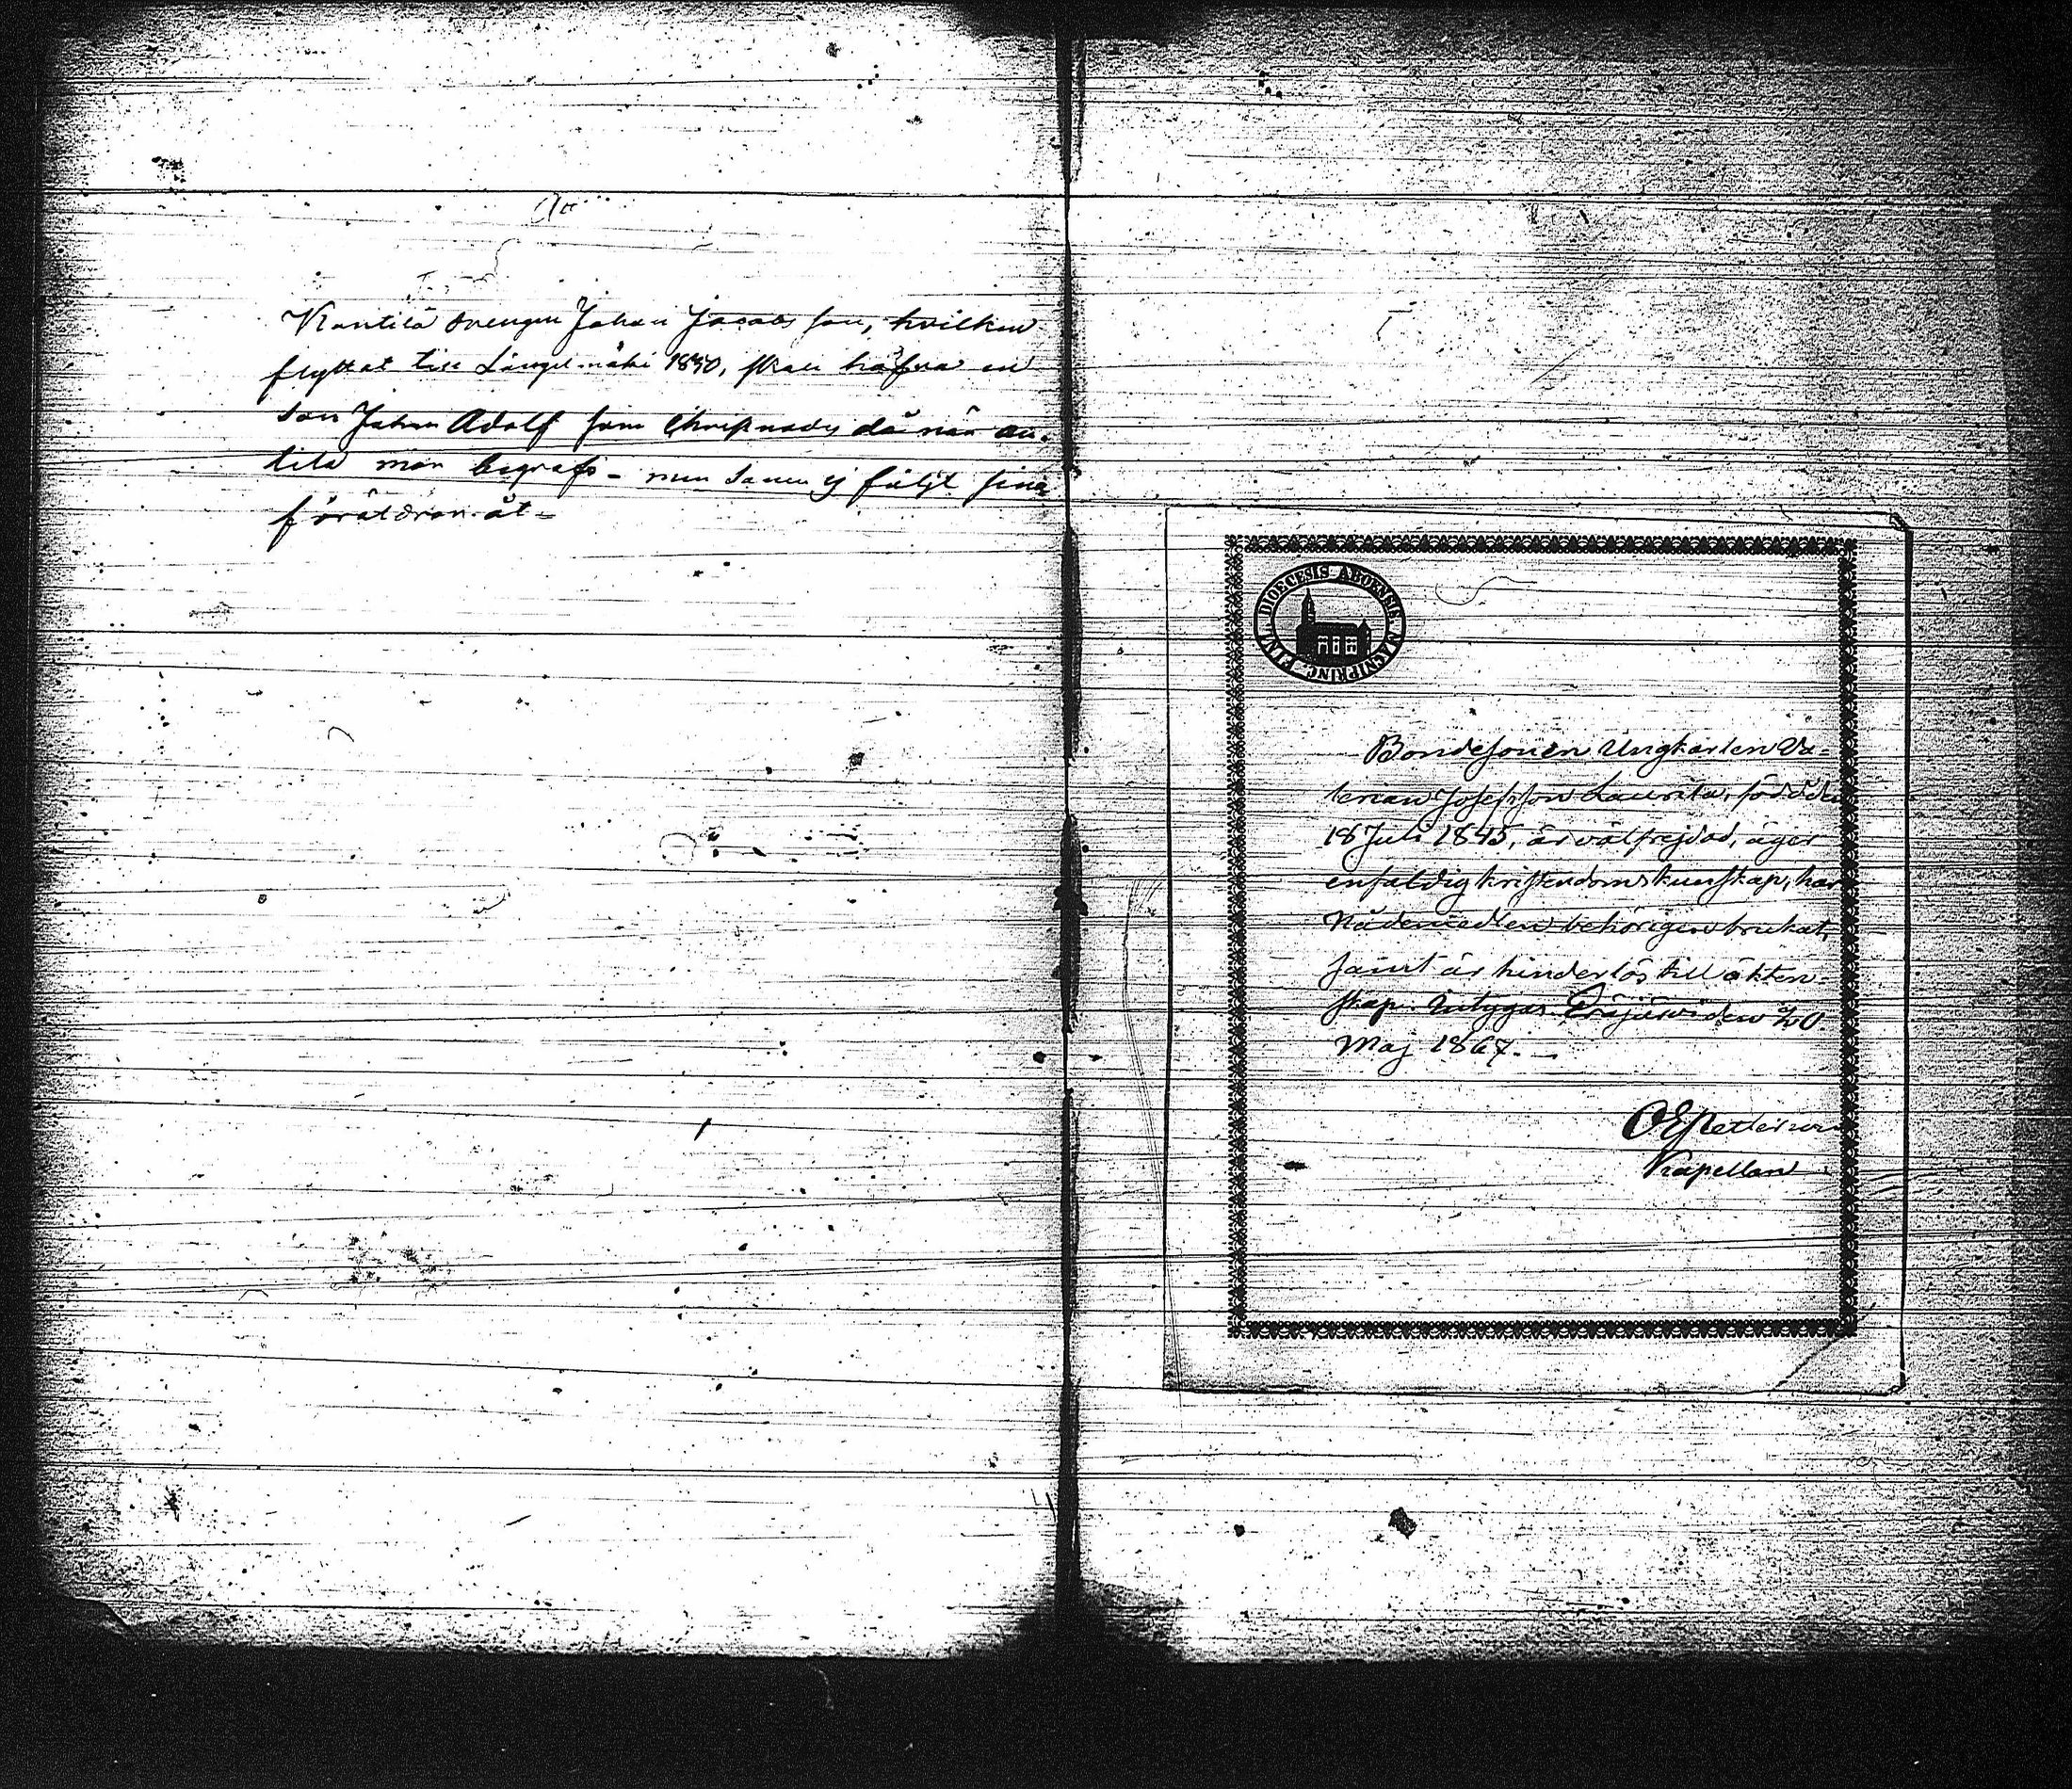 Kantila drengen Johan Jacobs son, hvilken
flyttat till Längelmäki 1850, skall hafva en
son Johan Adolf som Christnades då när an-
tila mor begrafs - men samm ej följt sina
föräldrar åt -
DIOECESIS ABOENSIS MAGNI PRINC. FINL.
Bondesonen Ungkarlen Va-
lerian Josefsson Laurila, född den
18 Juli 1845, är välfrejdad, äger
enfaldig kristendomskunskap, har
Nådemedlen behörigen brukat,
samt är hinderlös till äkten-
skap. Intygas. Eräjärvi den 20
Maj 1867.
Kapellan